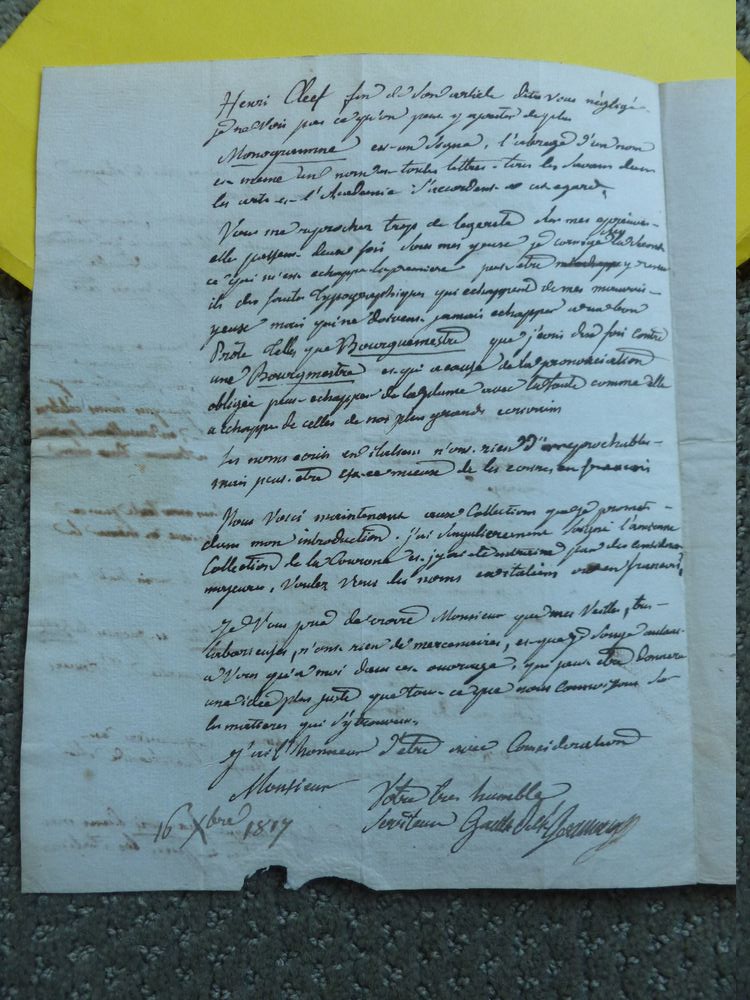 Henri Cleef fin de son article dites vous négligé.
je ne vois pas ce qu'on peut y ajouter de plus
Monogramme est un signe, l'abregé d'un nom
et même un nom en toutes lettres. tous les savans dans
les arts et l'Academie s'accordent a cet egard,
Vous me reprochez trop de legereté sur mes épreuves
elle passent deux fois sous mes yeux je corrige la seconde
ce qui m'est echappé la premiere peut être y reste
ils des fautes typographiques qui echappent de mes mauvais
yeux mais qui ne doivent jamais echapper a un bon
Prote telles que Bourguemestre que j'écris dix fois contre
une Bourgmestre et qui a cause de la prononciation
obligée peut echapper de la plume avec la faute comme elle
a echappé de celles de nos plus grands ecrivains
les noms ecrits en italiens n'ont rien d'irreprochables
mais peut être est-ce mieux de les ecrire en francais
Nous Voici maintenant aux Collections que je promets
dans mon introduction. j'ai singulierement soigné l'ancienne
Collection de la Couronne et j'y ai été entrainé par des considerations
majeures, Voulez Vous les noms en italiens ou en francais,
Je Vous prie de croire Monsieur que mes Veilles, très
laborieuses, n'ont rien de mercenaires, et que je songe autant
a Vous qu'a moi dans cet ouvrage, qui peut être donnera
une idée plus juste que tout ce que nous connaissons sur
les matieres qui s'y trouvent.
J'ai l'honneur d'être avec Consideration
Monsieur Votre tres humble
16 Xbre 1817 Serviteur Gault de St Germain